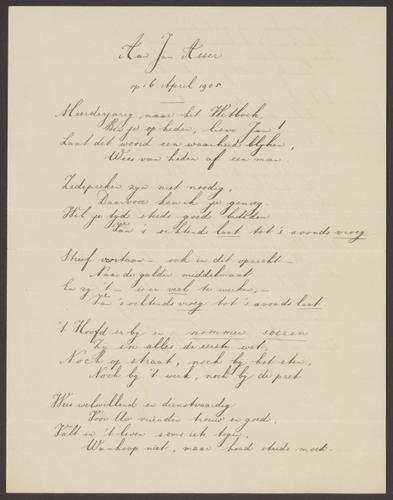 Aan Jan Asser
op 6 April 1905.
Meerderjarig, naar het Wetboek,
Ben je op heden, lieve Jan!
Laat dit woord een waarheid blijken,
Wees van heden af een man.
Zedepreken zijn niet noodig,
Daarvoor ken ik je genoeg.
Wil je tijd steeds goed besteden
Van 's ochtends laat tot 's avonds vroeg
Streef voortaan – ook in dit opzicht –
Naar de gulden middelmaat
En zij 't – is er veel te werken, –
Van 's ochtends vroeg tot 's avonds laat.
't Hoofd er bij en nommer
Zij in alles de eerste wet,
Noch op straat, noch bij het eten,
Noch bij 't werk, noch bij de pret.
Wees welwillend en dienstvaardig
Voor Uw vrienden trouw en goed,
Valt in 't leven soms iets tegen,
Wanhoop niet, maar houd steeds moed.